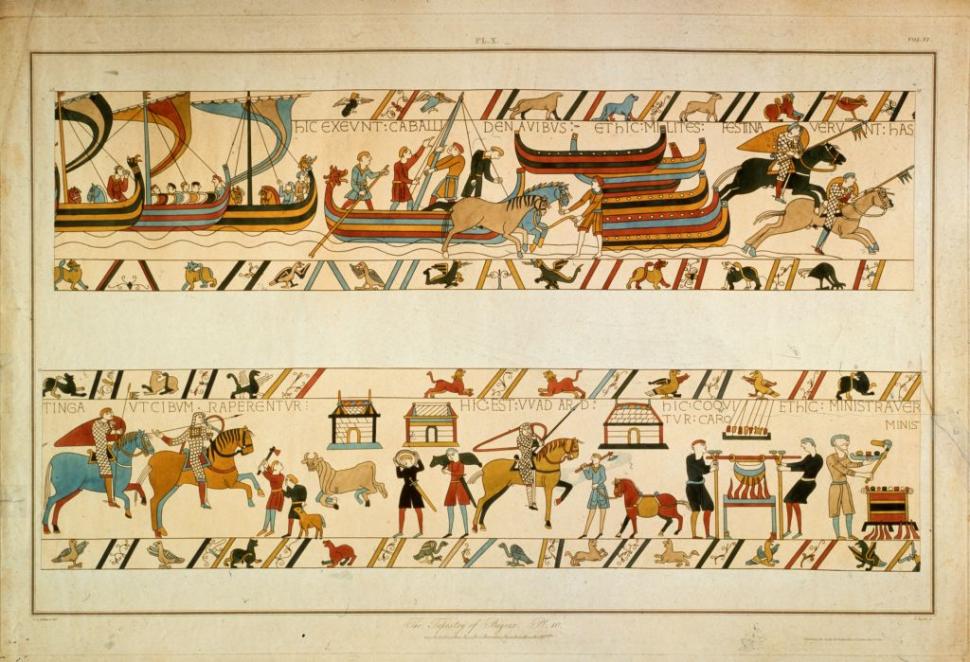 PL. X.
VOL. VI.
HIC EXEVNT: CABALLI DENAVIBUS:- ETHIC: MILITES: FESTINA VERVNT: HAS
TINGA VTCIBVM · RAPERENTVR : HIC · EST: VVADARD: HIC: COQVI ETHIC: MINISTRAVER
TVR: CARO MINIS
The Tapestry of Bayeux. Pl. 10.